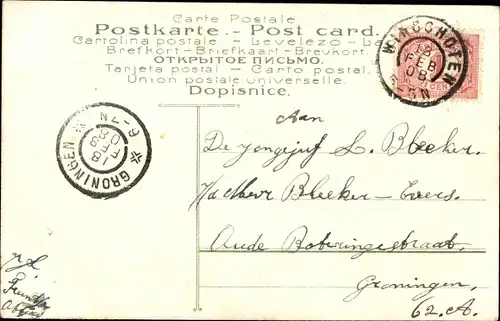 Carte Postale
Postkarte.- Post card.
Cartolina postale - Levelezo-
Brefkort - Briefkaart - Brevkort.
ОТКРЫТОЕ ПИСЬМО.
Tarjeta postal - Carto postal.
Union postale universelle.
Dopisnice.
WINSCHOTEN
18
FEB
08
GRONINGEN
6-7N
Aan
De Jongejuf L. Bleeker.
Bleeker-
Oude Boteringestraat.
Groningen.
62.A.